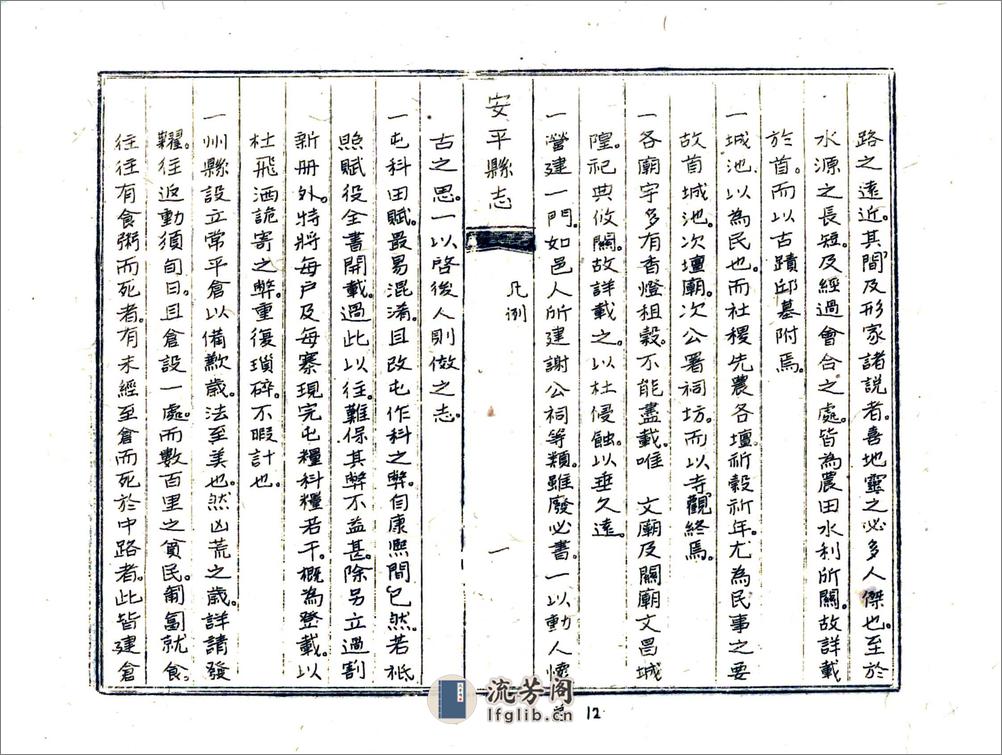 路之遠近。其間及形家諸説者。喜地靈之必多人傑也。至於
水源之長短。及經過會合之處。皆為農田水利所關。故詳載
於首。而以古蹟邱墓附焉。
一城池以為民也。而社稷先農各壇祈穀祈年。尤為民事之要
故首城池。次壇廟。次公署祠坊。而以寺觀終焉。
一各廟宇多有香燈租穀。不能盡載。唯 文廟及關廟文昌城
隍。祀典攸關。故詳載之。以杜侵蝕。以垂久遠。
一營建一門。如邑人所建謝公祠等類。雖廢必書。一以動人懷
安平縣志 凡例 一
古之思。一以啓後人則倣之志。
一屯科田賦。最易混淆。且改屯作科之弊。自康熙間已然。若祗
照賦役全書開載。過此以往。難保其弊不益甚。除另立過割
新册外。特將每戶及每寨現完屯糧科糧若干。概為登載。以
杜飛洒詭寄之弊。重復瑣碎。不暇計也。
一州縣設立常平倉以備歉歲。法至美也。然凶荒之歲。詳請發
糶。往返動須旬日。且倉設一處。而數百里之貧民。匍匐就食。
往往有食粥而死者。有未經至倉而死於中路者。此皆建倉
流芳阁
lfglib.cn
12